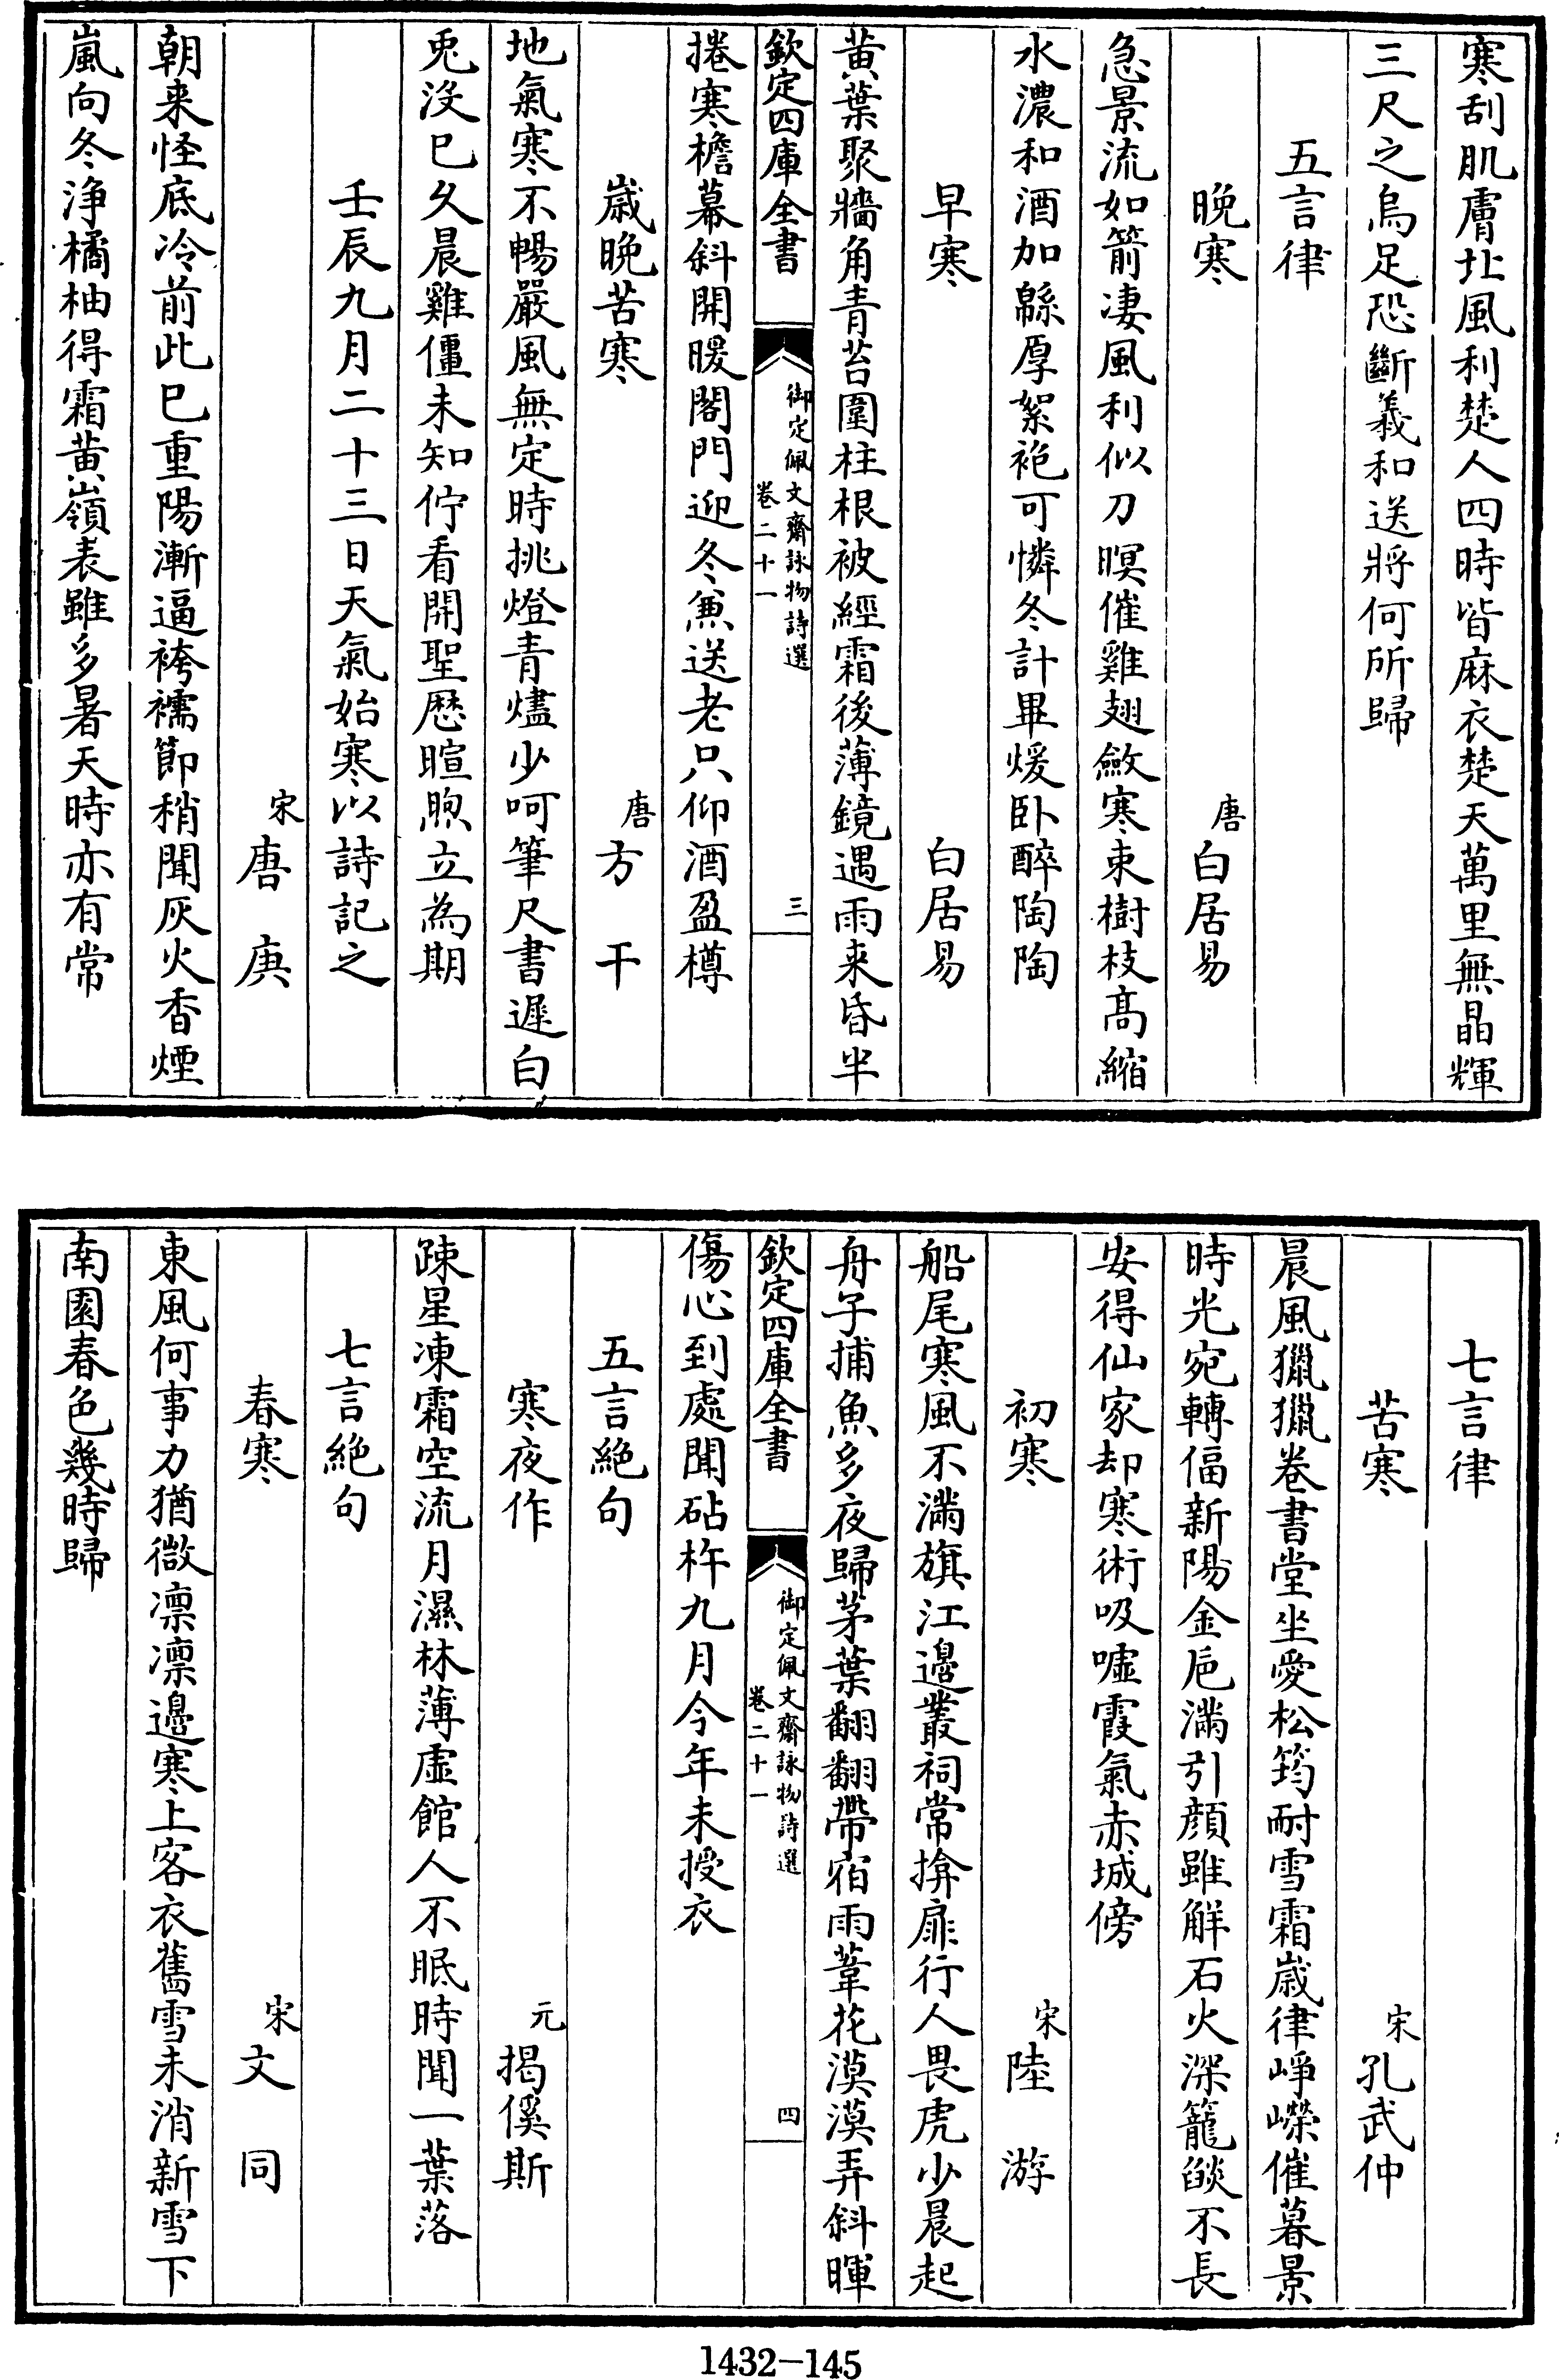 寒刮肌膚北風利楚人四時皆麻衣楚天萬里無晶輝
三尺之烏足恐斷羲和送將何所歸
五言律
晚寒 唐 白居易
急景流如箭凄風利似刀暝催雞翅斂寒束樹枝高縮
水濃和酒加緜厚絮袍可憐冬計畢煖卧醉陶陶
早寒 白居易
黃葉聚牆角青苔圍柱根被經霜後薄鏡遇雨来昏半
欽定四庫全書 御定佩文齋詠物詩選 卷二十一 三
捲寒檐幕斜開暖閣門迎冬兼送老只仰酒盈樽
歲晚苦寒 唐 方干
地氣寒不暢嚴風無定時挑燈青燼少呵筆尺書遲白
兎没已久晨雞僵未知佇看開聖歴暄煦立為期
壬辰九月二十三日天氣始寒以詩記之
宋 唐庚
朝来怪底冷前此已重陽漸逼袴襦節稍聞灰火香煙
嵐向冬浄橘柚得霜黃嶺表雖多暑天時亦有常
七言律
苦寒 宋 孔武仲
晨風獵獵卷書堂坐愛松筠耐雪霜歲律崢嶸催暮景
時光宛轉偪新陽金巵滿引顔雖解石火深籠燄不長
安得仙家却寒術吸噓霞氣赤城傍
初寒 宋 陸游
船尾寒風不滿旗江邊叢祠常揜扉行人畏虎少晨起
舟子捕魚多夜歸茅葉翻翻帶宿雨葦花漠漠弄斜暉
欽定四庫全書 御定佩文齋詠物詩選 卷二十一 四
傷心到處聞砧杵九月今年未授衣
五言絶句
寒夜作 元 揭傒斯
疎星凍霜空流月濕林薄虛館人不眠時聞一葉落
七言絶句
春寒 宋 文同
東風何事力猶微凛凛邊寒上客衣舊雪未消新雪下
南園春色幾時歸
1432-145